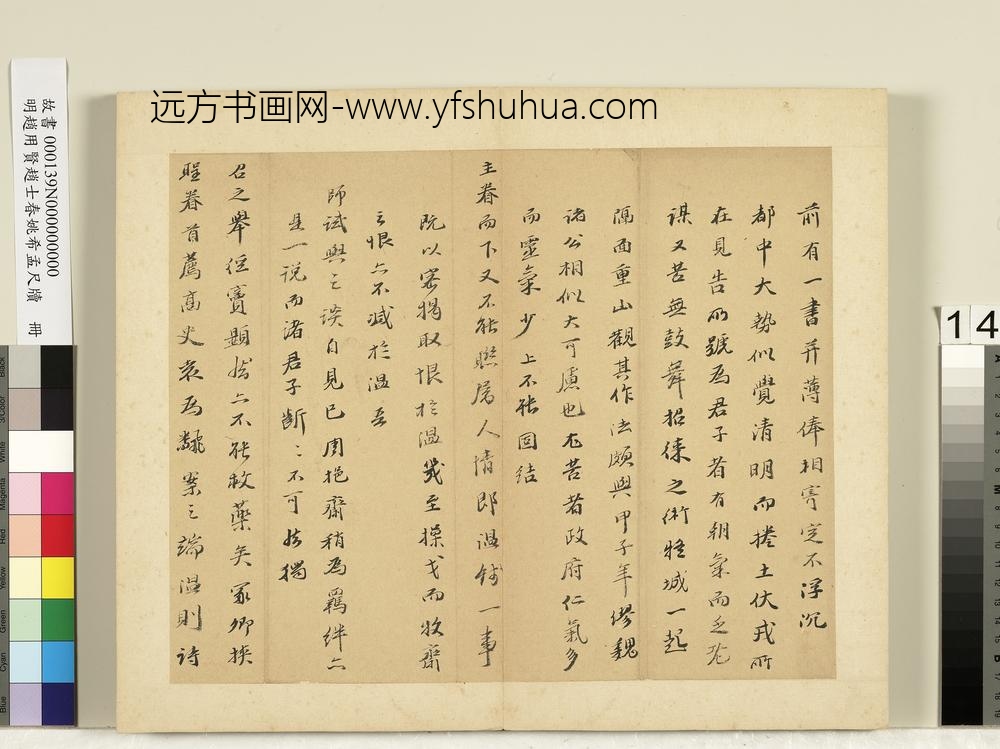 远方书画网-www.yfshuhua.com
故書 000139N000000000
明趙用賢趙士春姚希孟尺牘 冊
14
前有一書并薄俸相寄定不浮沉
都中大勢似覺清明而捲土伏戎所
在見告所號為君子者有朝氣而乏
謀又苦無鼓舞招徠之術將城一起
隔面重山觀其作法頗與甲子年繆魏
諸公相似大可慮也尤苦者政府仁氣多
而靈氣少上不能固結
主眷而下又不能聯屬人情即溫錢一事
既以密揭取恨於溫幾至操戈而收
之恨亦不減於溫吾
師試與之談自見已周挹齋稍為羈絆亦
是一說而諸君子斷斷不可於獨
召之舉但賓題於亦不能救藥矣冢卿挾
眷首薦高史袁為翻案之端溫則詩
Black
3/Color
White
Magenta
Red
Yellow
Green
Cyan
Blue